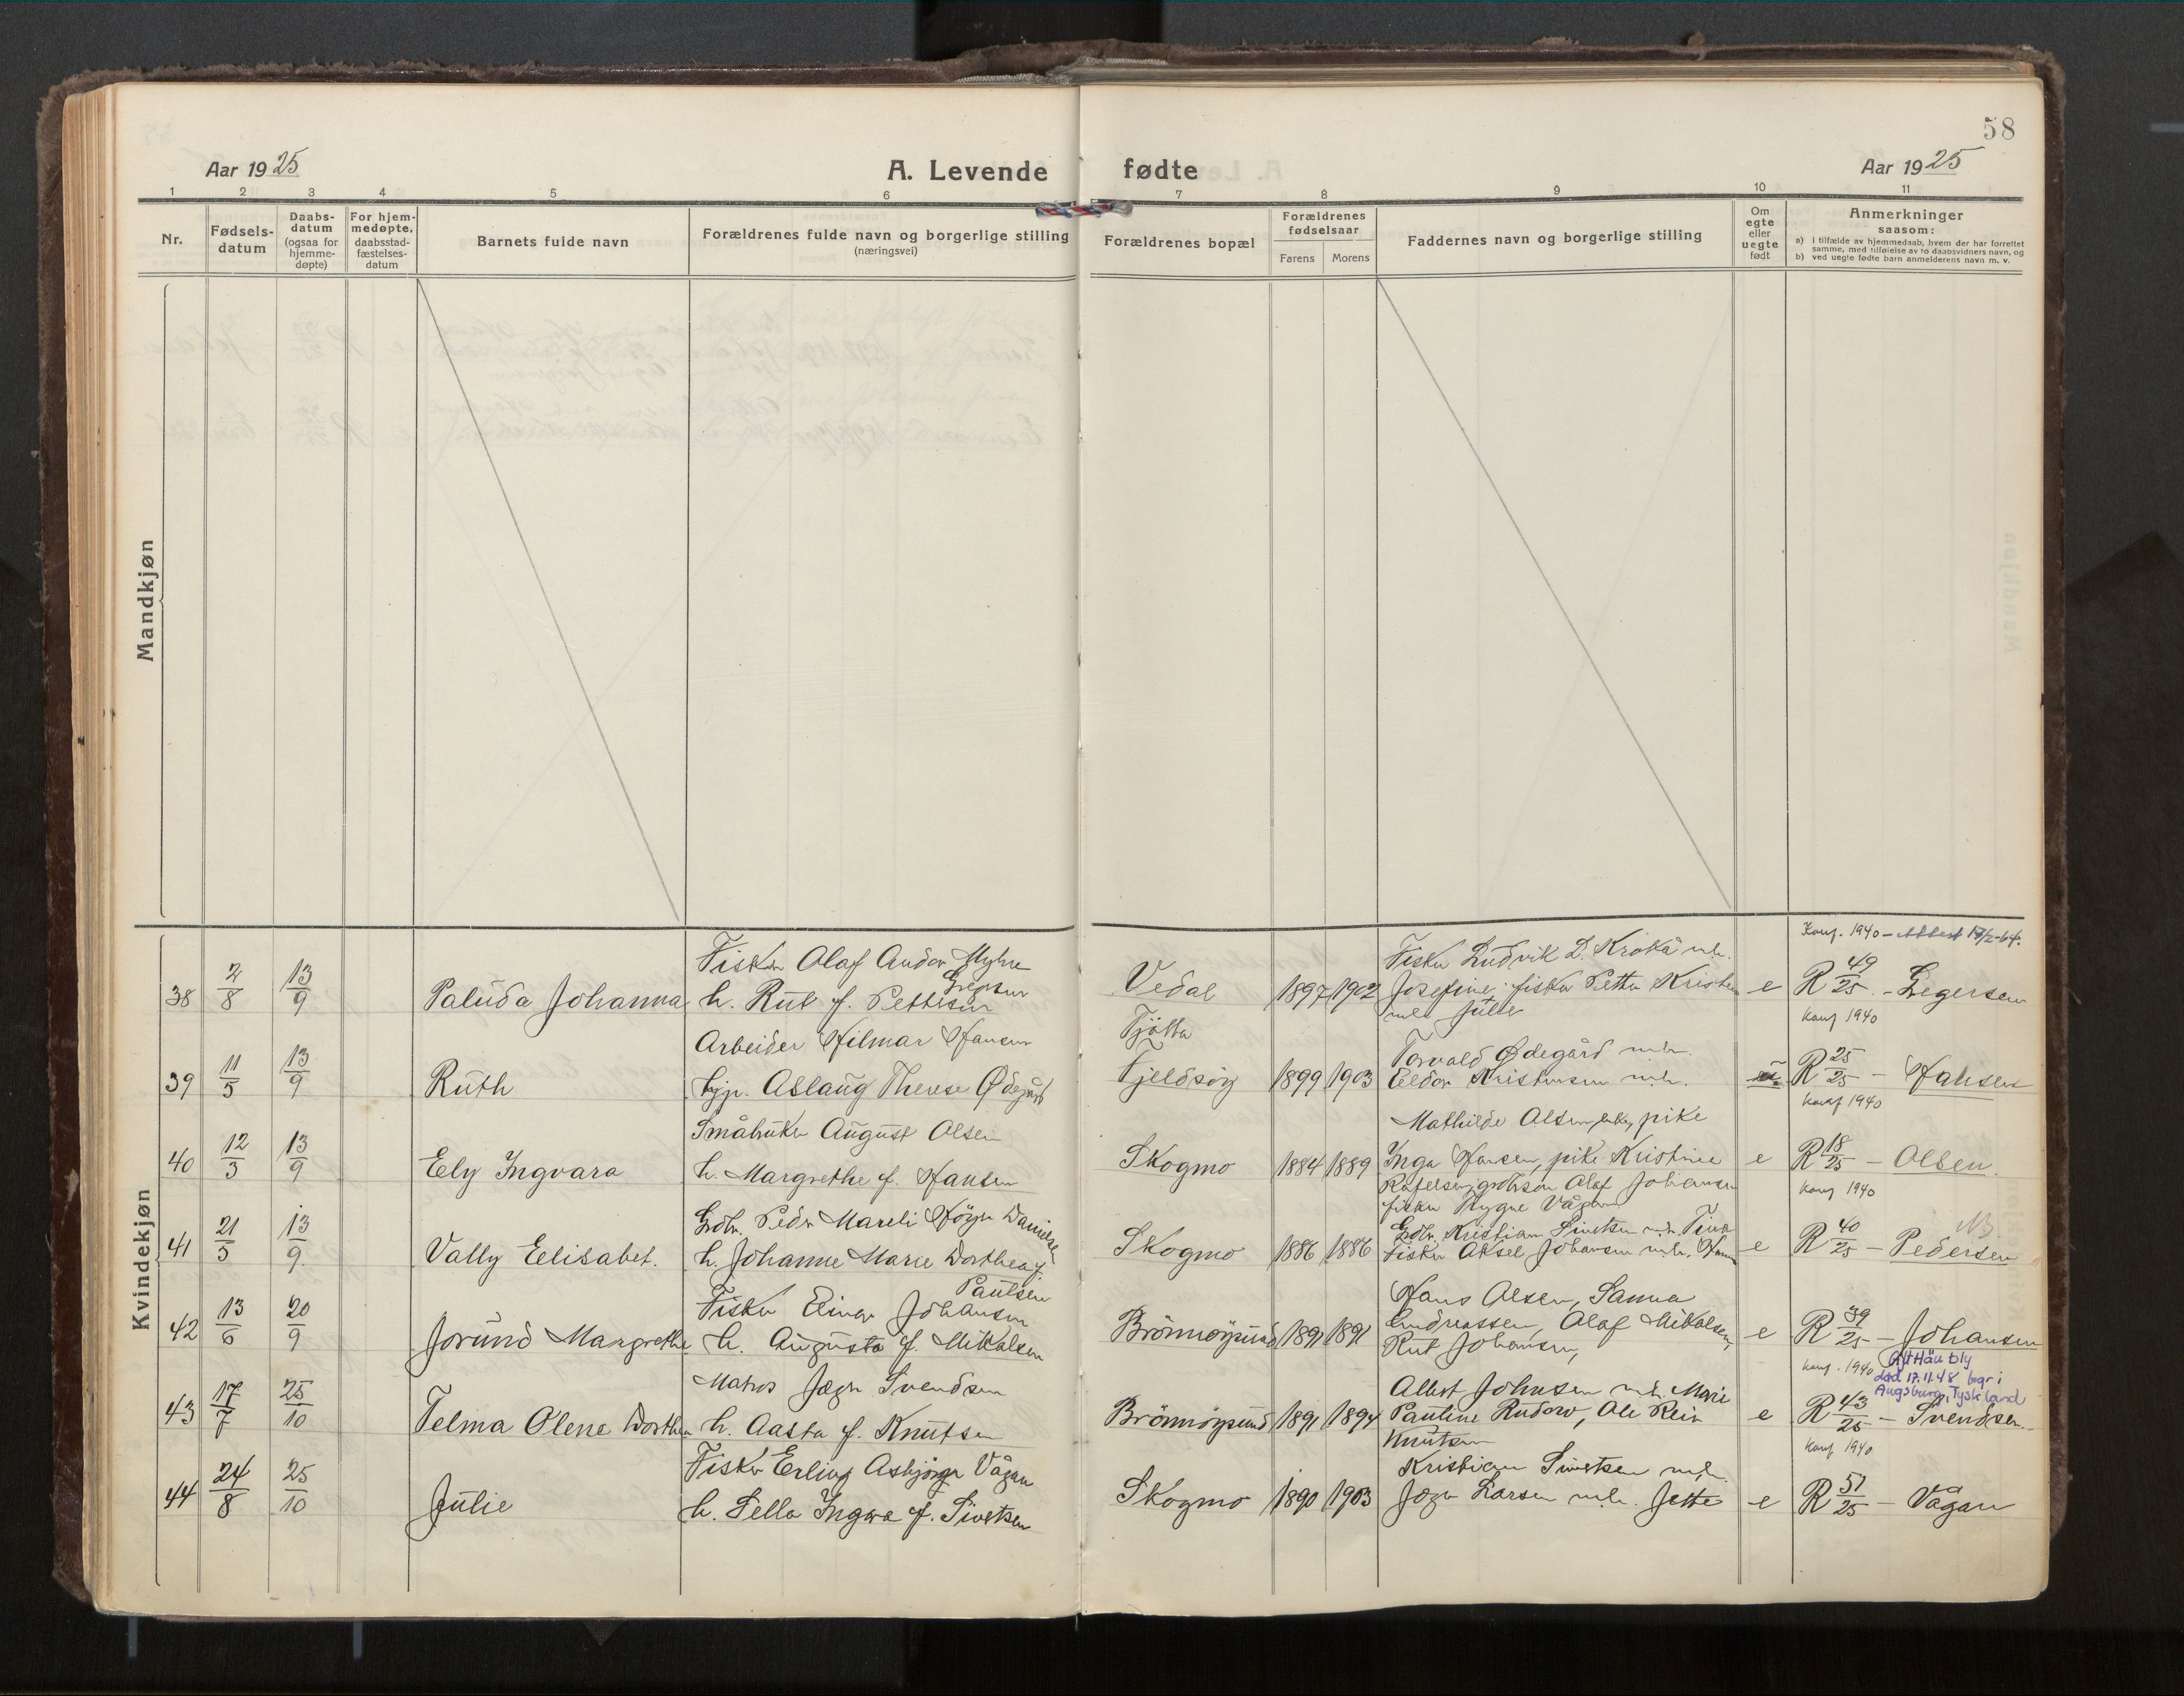 58
Aar 1925
A. Levende fødte
Aar 1925
1 2 3 4 5 6 7 8 9 10 11
Nr.
Fødsels-
datum
Daabs-
datum
(ogsaa for
hjemme-
døpte)
For hjem-
medøpte,
daabsstad-
fæstelses-
datum
Barnets fulde navn
Forældrenes fulde navn og borgerlige stilling
(næringsvei)
Forældrenes bopæl
Forældrenes
fødselsaar
Farens Morens
Faddernes navn og borgerlige stilling
Om
egte
eller
uegte
født
Anmerkninger
saasom:
a) i tilfælde av hjemmedaab, hvem der har forrettet
samme, med tilføielse av to daabsvidners navn, og
b) ved uegte fødte barn anmelderens navn m. v.
Mandkjøn
Kvindekjøn
Konf. 1940 - Attest 17/2-64.
Fisker Olaf Andor Myhre
Fisker Ludvik D. Krokå m.h.
38 2/8 13/9 Palüda Johanna h. Rut f. Pettersen Vedal 1897 1902 Josefine. fisker Petter Kristen e R 49/25 - Segersen
m.h. Jütte
Konf 1940
Arbeider Hilmar Hansen
Tjötta
Torvald Ødegård m.h.
39 11/5 13/9 Rüth tjp. Aslaüg Therese Ødegård Fjeldsöy 1899 1903 Eldor Kristensen m.h. R 25/25 - Hansen
Konf 1940
Småbrüker Aügüst Olsen
Mathilde Olsen, pike
40 12/3 13/9 Ely Ingvara h. Margrethe f. Hansen Skogmo 1884 1889 Inga Hansen, pike Kristine e R 18/25 - Olsen.
Rafelsen, grdbrsøn Olaf Johansen
fisker Trygve Vågan
Konf 1940
Grdbr. Peder Mareli Högr Danielsen
Grdbr. Kristian Sivetsen m.h. Tina
41 21/5 13/9 Vally Elisabet. h. Johanne Marie Dorthea f. Skogmo 1886 1886 Fisker Aksel Johansen m.h. e R 40/25 - Pedersen
Paülsen
Fisker Einar Johansen
Hans Olsen, Sanna
42 13/6 20/9 Joründ Margrethe h. Aügüsta f. Mikalsen Brönnöysünd 1891 1891 Andreassen, Olaf Mikalsen, e R 39/25 - Johansen
Rut Johansen,
Konf. 1940
Gift Häubly
død 17.11.48 begr i
Augsburg, Tyskland
Matros Jægr Svendsen
Albert Johnsen m.h. Marie
43 17/7 25/10 Telma Olene Dorthea h. Aasta f. Knütsen Brönnöysünd 1891 1894 Pauline Rüdow, Ole Rein e R 43/25 - Svendsen.
Knütsen
Konf 1940
Fisker Erling Asbjörgr Vågan
Kristian Sivetsen m.h.
44 24/8 25/10 Jülie h. Sella Ingva f. Sivetsen Skogmo 1890 1903 Jægr Larsen m.h. Jette e R 51/25 - Vågan